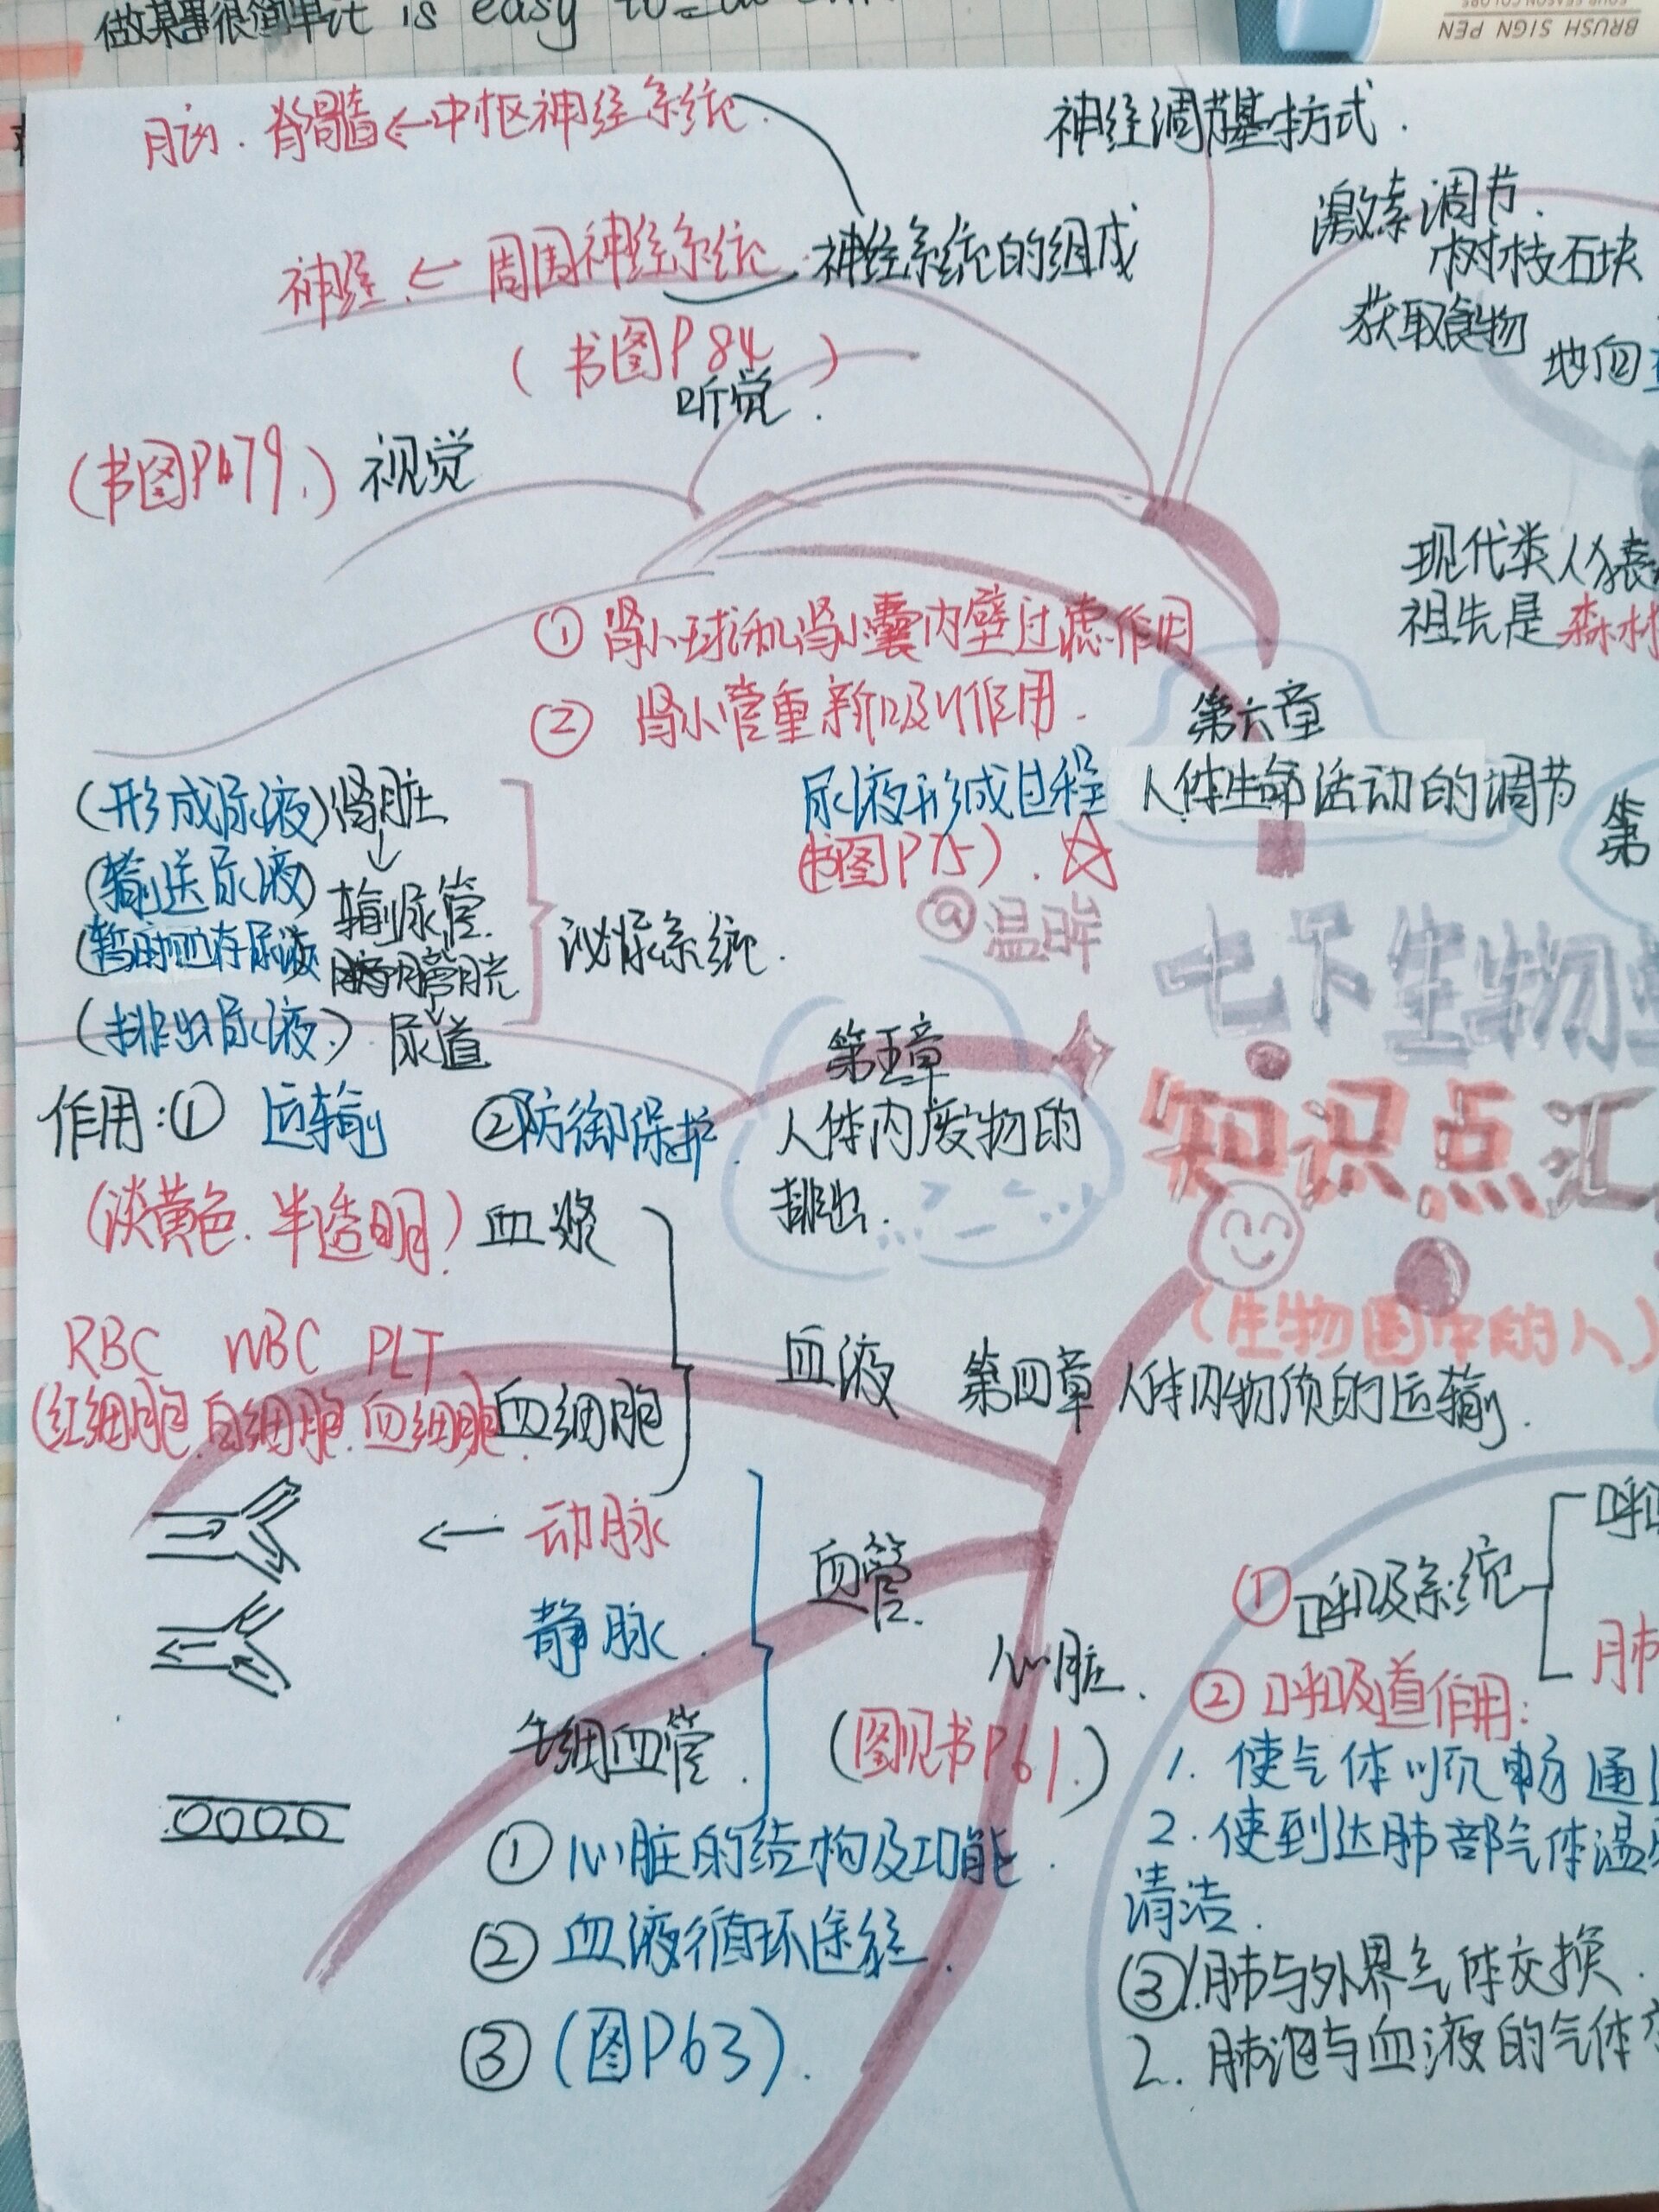 做某事很简单it is easy to
BRUSH SIGN PEN
脑.脊髓←中枢神经系统.
神经调节基本方式.
激素调节.
神经.← 周围神经系统 神经系统的组成
树枝石块
获取食物
(书图P84)
听觉.
(书图P79.) 视觉
现代类人猿
祖先是森林
①肾小球和肾小囊内壁过滤作用
②肾小管重新吸收作用.
第六章
人体生命活动的调节
尿液形成过程
(书图P75).☆
(形成尿液)肾脏
↓
(输送尿液)输尿管.
(暂时贮存尿液 膀胱
↓
(排出尿液.)尿道
泌尿系统.
@温眸
七下生物
知识点汇
(生物圈中的人)
第
第五章
人体内废物的
排出.
作用:① 运输 ②防御保护.
(淡黄色.半透明)血浆
RBC WBC PLT
(红细胞.白细胞.血细胞 血细胞
血液 第四章 人体内物质的运输.
← 动脉
静脉.
毛细血管.
血管.
心脏.
(图见书P61.)
①心脏的结构及功能.
②血液循环途径.
③(图P63).
①呼吸系统
肺
②呼吸道作用:
1.使气体顺畅通
2.使到达肺部气体温
清洁.
③1.肺与外界气体交换.
2.肺泡与血液的气体